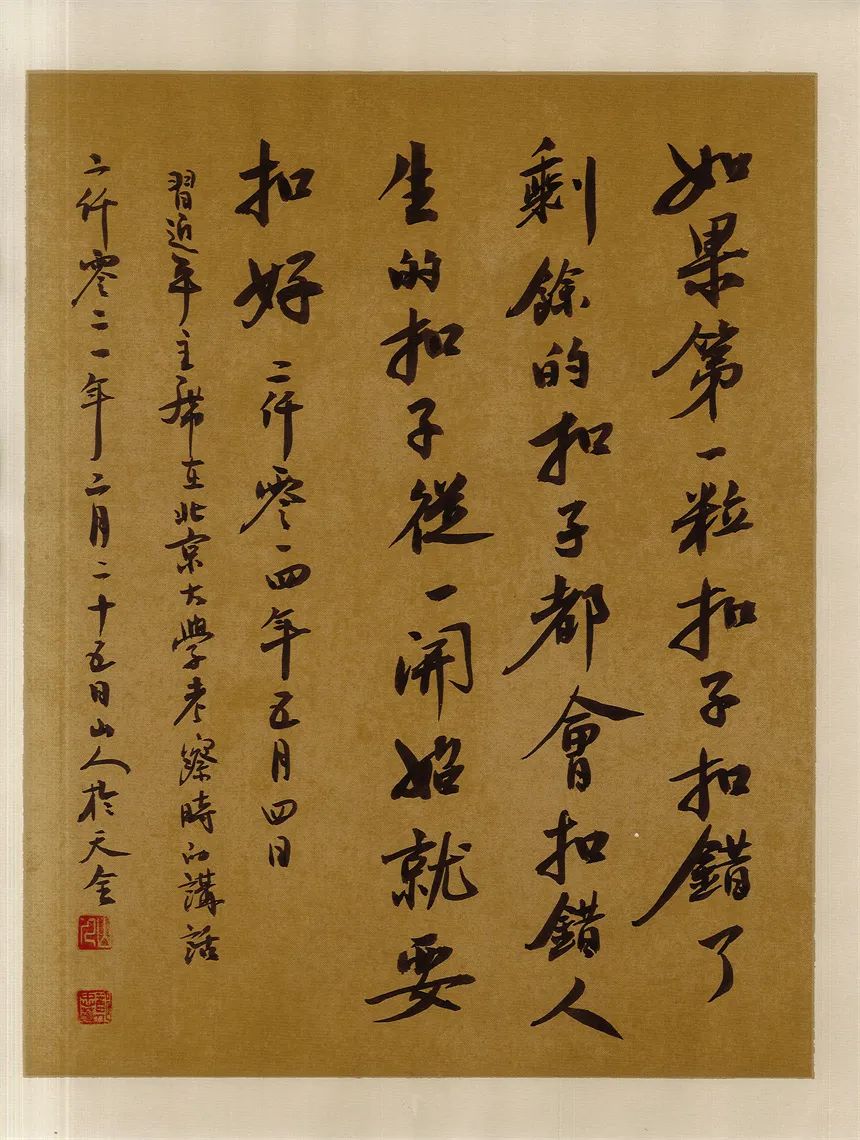 如果第一粒扣子扣錯了
剩餘的扣子都會扣錯人
生的扣子從一開始就要
扣好
二仟零一四年五月四日
習近平主席在北京大學考察時的講話
二仟零二一年二月二十五日山人於天金